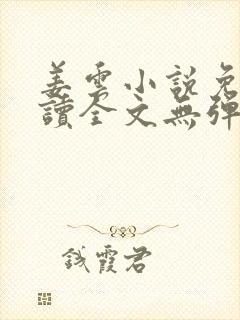 姜雲小說免
讀全文無彈
錢霞君